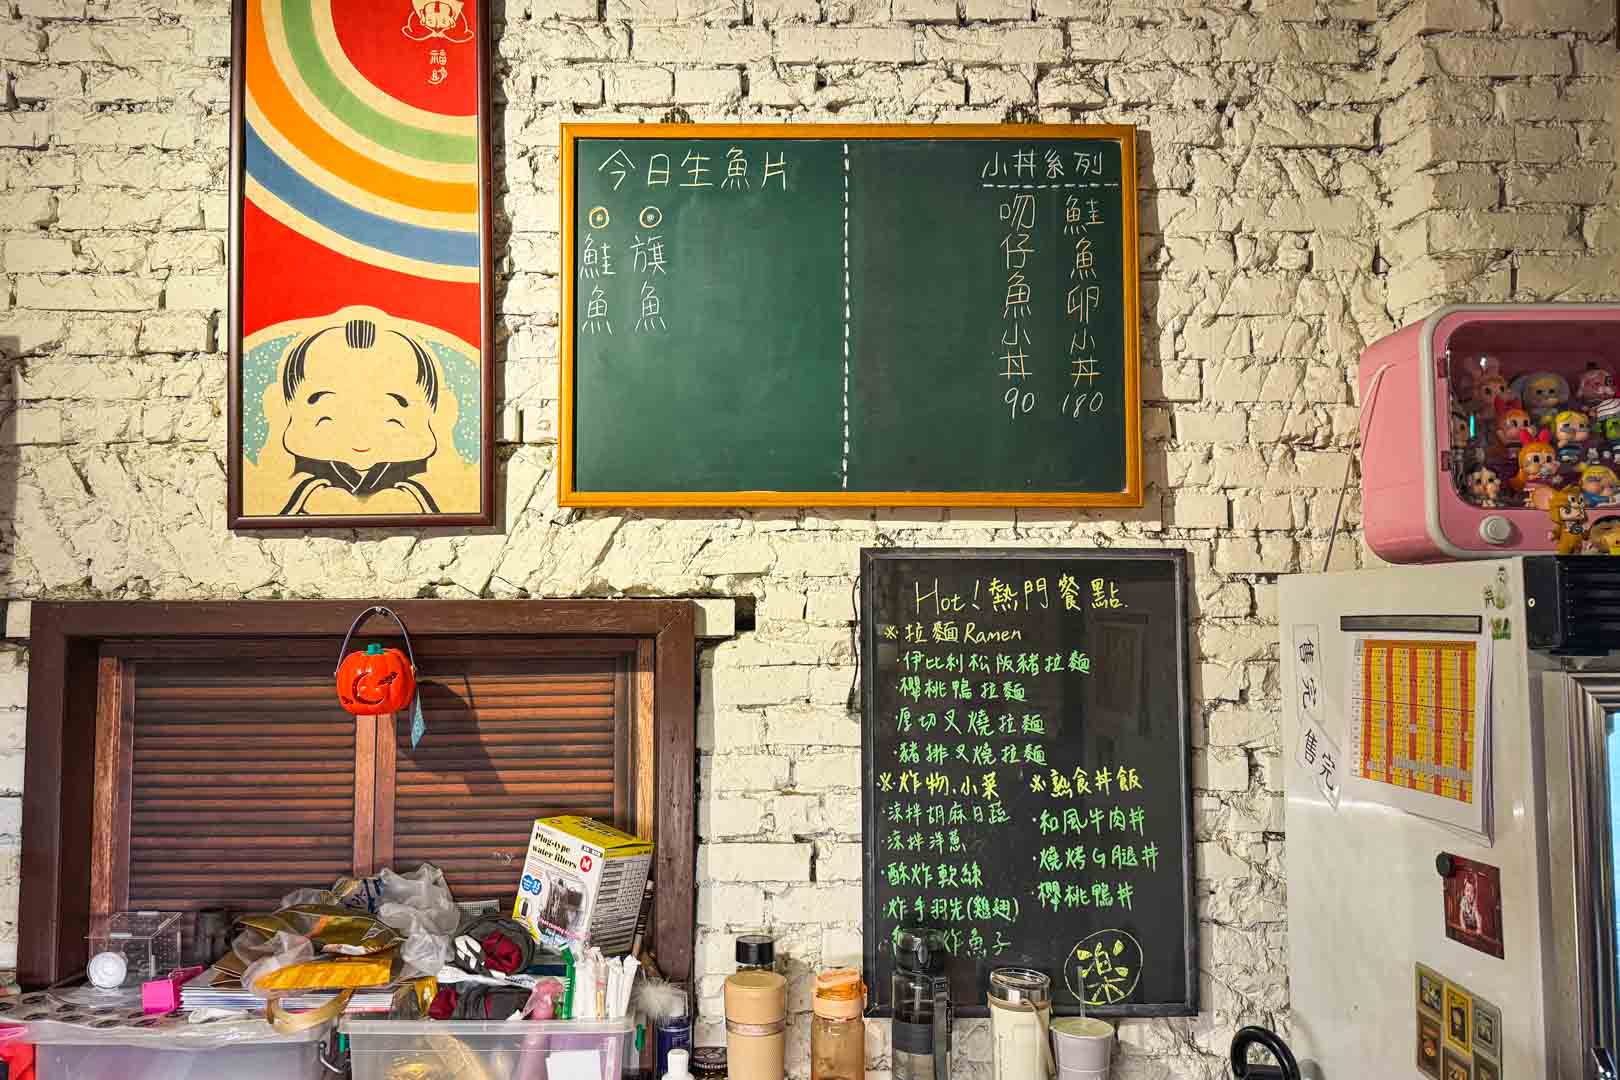 福助
今日生魚片
◎旗魚
◎鮭魚
小丼系列
鮭魚卵小丼 180
吻仔魚小丼 90
Hot!熱門餐點.
※拉麵 Ramen
·伊比利松阪豬拉麵
·櫻桃鴨拉麵
·厚切叉燒拉麵
·豬排叉燒拉麵
※炸物、小菜
·涼拌胡麻日蔬
·涼拌洋蔥
·酥炸軟絲
·炸手羽先(雞翅)
炸魚子
※熟食丼飯
·和風牛肉丼
·燒烤G腿丼
·櫻桃鴨丼
楽
售完
售完
Plug-type
water filters
M